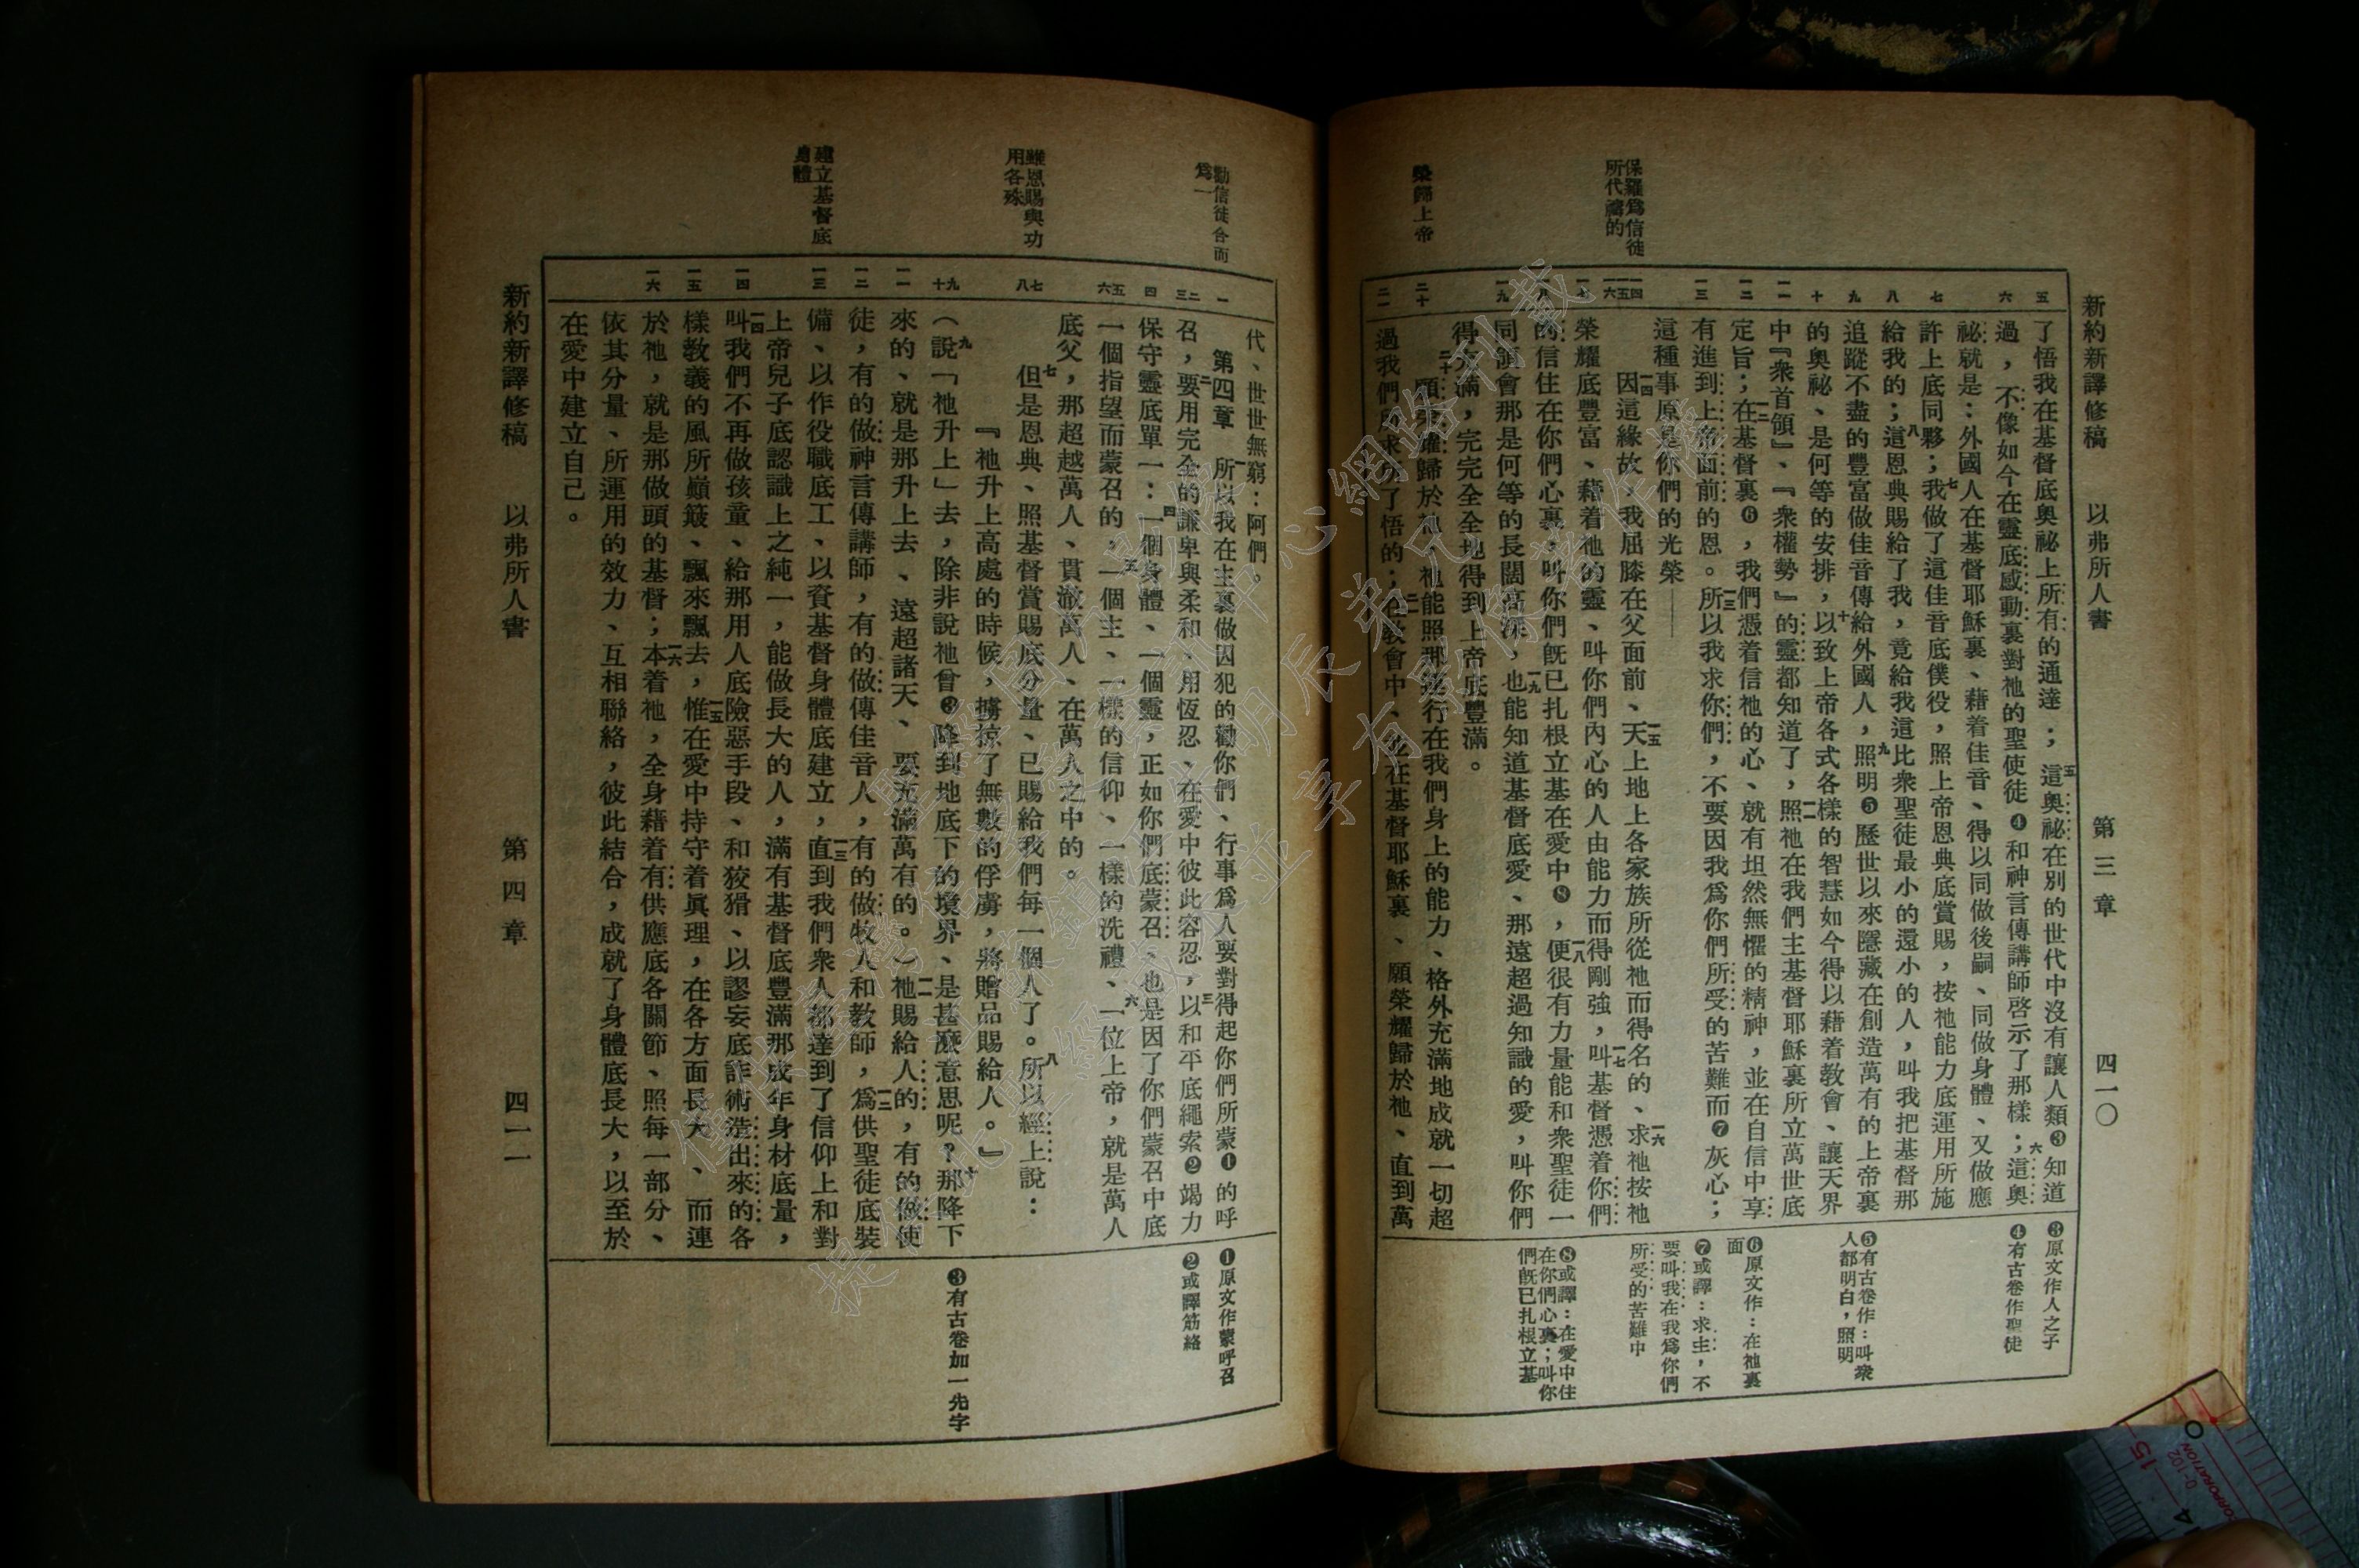 新約新譯修稿　以弗所人書　第三章　四一〇
保羅爲信徒
所代禱的
榮歸上帝
五
六
七
八
九
十
一一
一二
一三
一四
一五
一六
一七
一八
一九
二十
二一
了悟我在基督底奧祕上所有的通達；五這奧祕在別的世代中沒有讓人類❸知道
過，不像如今在靈底感動裏對祂的聖使徒❹和神言傳講師啓示了那樣；六這奧
祕就是：外國人在基督耶穌裏、藉着佳音、得以同做後嗣、同做身體、又做應
許上底同夥；七我做了這佳音底僕役，照上帝恩典底賞賜，按祂能力底運用所施
給我的；八這恩典賜給了我，竟給我這比衆聖徒最小的還小的人，叫我把基督那
追蹤不盡的豐富做佳音傳給外國人，九照明❺歷世以來隱藏在創造萬有的上帝裏
的奧祕、是何等的安排，十以致上帝各式各樣的智慧如今得以藉着教會、讓天界
中『衆首領』、『衆權勢』的靈都知道了，一一照祂在我們主基督耶穌裏所立萬世底
定旨；一二在基督裏❻，我們憑着信祂的心、就有坦然無懼的精神，並在自信中享
有進到上帝面前的恩。一三所以我求你們，不要因我爲你們所受的苦難而❼灰心；
這種事原是你們的光榮——
一四因這緣故，我屈膝在父面前、一五天上地上各家族所從祂而得名的、一六求祂按祂
榮耀底豐富、藉着祂的靈、叫你們內心的人由能力而得剛強，一七叫基督憑着你們
的信住在你們心裏，叫你們既已扎根立基在愛中❽，一八便很有力量能和衆聖徒一
同領會那是何等的長闊高深，一九也能知道基督底愛、那遠超過知識的愛，叫你們
得充滿，完完全全地得到上帝底豐滿。
二十願榮耀歸於祂，祂能照那運行在我們身上的能力、格外充滿地成就一切超
過我們所求所了悟的；二一在教會中、並在基督耶穌裏、願榮耀歸於祂、直到萬
❸原文作人之子
❹有古卷作聖徒
❺有古卷作：叫衆
人都明白，照明
❻原文作：在祂裏
面
❼或譯：求主，不
要叫我在我爲你們
所受的苦難中
❽或譯：在愛中住
在你們心裏；叫你
們既已扎根立基
勸信徒合而
爲一
雖恩賜與功
用各殊
建立基督底
身體
一
二
三
四
五
六
七
八
九
十
一一
一二
一三
一四
一五
一六
代、世世無窮：阿們。
第四章　一所以我在主裏做囚犯的勸你們、行事爲人要對得起你們所蒙❶的呼
召，二要用完全的謙卑與柔和、用恆忍、在愛中彼此容忍，三以和平底繩索❷竭力
保守靈底單一：四一個身體、一個靈，正如你們底蒙召、也是因了你們蒙召中底
一個指望而蒙召的，五一個主、一樣的信仰、一樣的洗禮、六一位上帝，就是萬人
底父，那超越萬人、貫澈萬人、在萬人之中的。
七但是恩典、照基督賞賜底分量、已賜給我們每一個人了。八所以經上說：
『祂升上高處的時候，擄掠了無數的俘虜，將贈品賜給人。』
（九說「祂升上」去，除非說祂曾❸降到地底下的境界、是甚麼意思呢？十那降下
來的、就是那升上去、遠超諸天、要充滿萬有的。）一一祂賜給人的，有的做使
徒，有的做神言傳講師，有的做傳佳音人，有的做牧人和教師，一二爲供聖徒底裝
備、以作役職底工、以資基督身體底建立，一三直到我們衆人都達到了信仰上和對
上帝兒子底認識上之純一，能做長大的人，滿有基督底豐滿那成年身材底量，
一四叫我們不再做孩童、給那用人底險惡手段、和狡猾、以謬妄底詐術造出來的各
樣教義的風所巔簸、飄來飄去，一五惟在愛中持守着眞理，在各方面長大、而連
於祂，就是那做頭的基督；一六本着祂，全身藉着有供應底各關節、照每一部分、
依其分量、所運用的效力、互相聯絡，彼此結合，成就了身體底長大，以至於
在愛中建立自己。
❶原文作蒙呼召
❷或譯筋絡
❸有古卷加一先字
新約新譯修稿　以弗所人書　第四章　四一一
15
14